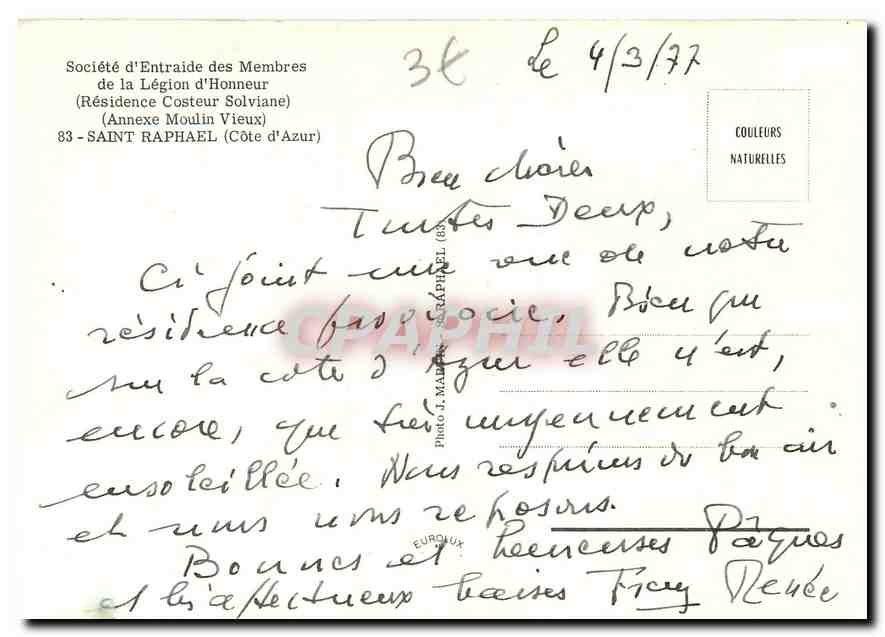 Société d'Entraide des Membres
de la Légion d'Honneur
(Résidence Costeur Solviane)
(Annexe Moulin Vieux)
83 - SAINT RAPHAEL (Côte d'Azur)
3€
Le 4/3/77
COULEURS
NATURELLES
Bien chères
Toutes Deux,
Ci joint une vue de notre
résidence provisoire. Bien que
sur la côte d'Azur elle n'est,
encore, que très moyennement
ensoleillée. Nous respirons du bon air
et nous nous reposons.
Bonnes et heureuses Pâques
et bis affectueux baisers Renée
Photo J. MAR RAPHAEL (83
EUROLUX
CPAPHIL